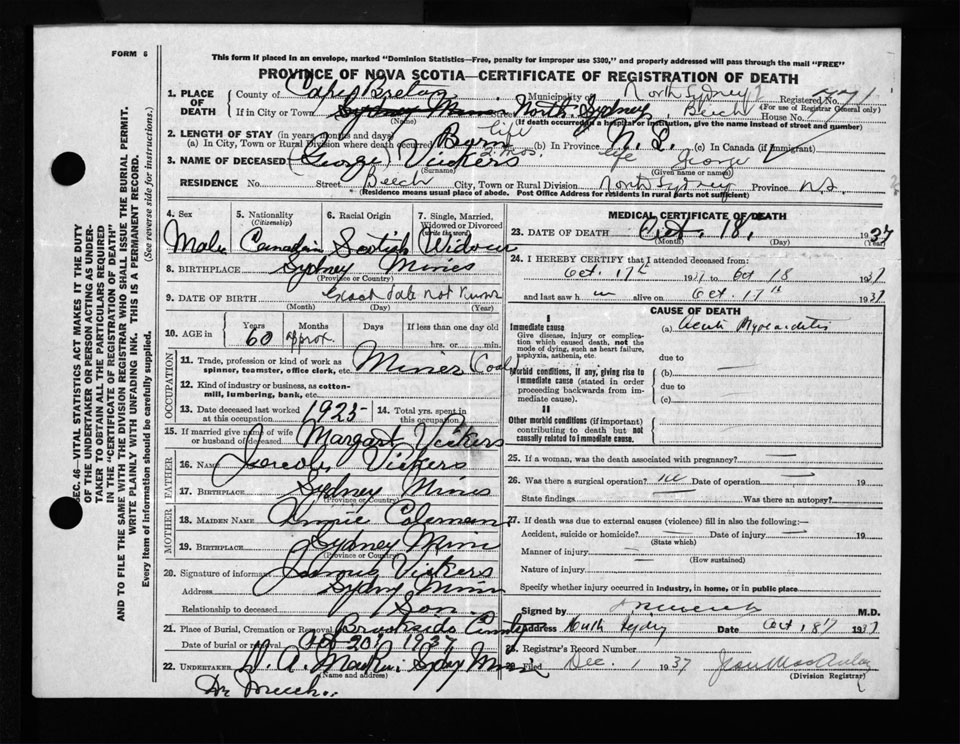 FORM 6
This form if placed in an envelope, marked "Dominion Statistics—Free, penalty for improper use $300," and properly addressed will pass through the mail "FREE"
PROVINCE OF NOVA SCOTIA—CERTIFICATE OF REGISTRATION OF DEATH
1. PLACE OF DEATH County of Cape Breton Municipality of North Sydney Registered No.
If in City or Town Sydney Mines North Sydney Street Beech House No. (For use of Registrar General only)
(Name) (If death occurred in a hospital or institution, give the name instead of street and number)
2. LENGTH OF STAY (in years, months and days)
(a) In City, Town or Rural Division where death occurred life (b) In Province life (c) In Canada (if immigrant)
3. NAME OF DECEASED (George) Vickers George
(Surname) (Given name or names)
RESIDENCE No. Street Beech City, Town or Rural Division North Sydney Province N.S.
(Residence means usual place of abode. Post Office Address for residents in rural parts not sufficient)
SEC. 46—VITAL STATISTICS ACT MAKES IT THE DUTY
OF THE UNDERTAKER OR PERSON ACTING AS UNDER-
TAKER TO OBTAIN ALL THE PARTICULARS REQUIRED
IN THE "CERTIFICATE OF REGISTRATION OF DEATH"
AND TO FILE THE SAME WITH THE DIVISION REGISTRAR WHO SHALL ISSUE THE BURIAL PERMIT.
WRITE PLAINLY WITH UNFADING INK. THIS IS A PERMANENT RECORD.
Every item of information should be carefully supplied. (See reverse side for instructions.)
4. Sex 5. Nationality (Citizenship) 6. Racial Origin 7. Single, Married, Widowed or Divorced (write the word)
Male Canadian Scotish Widower
8. BIRTHPLACE Sydney Mines
(Province or Country)
9. DATE OF BIRTH Exact date not known
(Month) (Day) (Year)
10. AGE in Years Months Days If less than one day old
60 approx. hrs. or min.
OCCUPATION
11. Trade, profession or kind of work as spinner, teamster, office clerk, etc. Miner (Coal)
12. Kind of industry or business, as cotton-mill, lumbering, bank, etc.
13. Date deceased last worked at this occupation 1925 14. Total yrs. spent in this occupation
15. If married give name of wife or husband of deceased Margaret Vickers
FATHER
16. Name Vickers
17. Birthplace Sydney Mines
(Province or Country)
MOTHER
18. MAIDEN NAME Annie Coleman
19. BIRTHPLACE Sydney Mines
(Province or Country)
20. Signature of informant James Vickers
Address Sydney Mines
Relationship to deceased Son
21. Place of Burial, Cremation or Removal Brookside Cemetery
Date of burial or removal Oct 20 1937
22. UNDERTAKER Sydney Mines
(Name and address)
MEDICAL CERTIFICATE OF DEATH
23. DATE OF DEATH Oct. 18, 1937
(Month) (Day) (Year)
24. I HEREBY CERTIFY that I attended deceased from:
Oct. 17th 1937 to Oct 18 1937
and last saw h im alive on Oct. 17th 1937
CAUSE OF DEATH
I
Immediate cause (a) Acute Myocarditis
Give disease, injury or complication which caused death, not the mode of dying, such as heart failure, asphyxia, asthenia, etc.
due to
Morbid conditions, if any, giving rise to immediate cause (stated in order proceeding backwards from immediate cause). (b)
due to
(c)
II
Other morbid conditions (if important) contributing to death but not causally related to immediate cause.
25. If a woman, was the death associated with pregnancy? —
26. Was there a surgical operation? no Date of operation — 19
State findings Was there an autopsy?
27. If death was due to external causes (violence) fill in also the following:—
Accident, suicide or homicide? — Date of injury — 19
(State which)
Manner of injury —
(How sustained)
Nature of injury —
Specify whether injury occurred in industry, in home, or in public place
Signed by M.D.
Address North Sydney Date Oct 18 1937
28. Registrar's Record Number
Filed Dec. 1 1937
(Division Registrar)